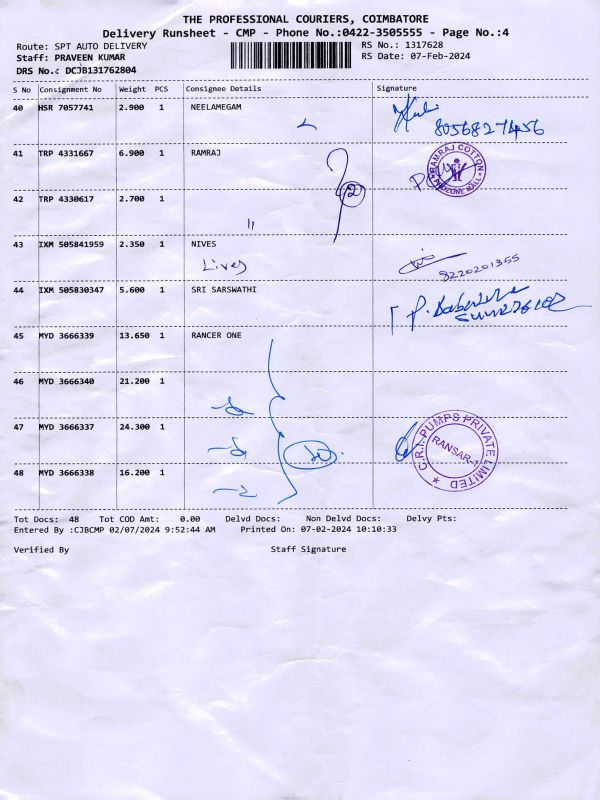 THE PROFESSIONAL COURIERS, COIMBATORE
Delivery Runsheet - CMP - Phone No.:0422-3505555 - Page No.:4
Route: SPT AUTO DELIVERY
RS No.: 1317628
Staff: PRAVEEN KUMAR
RS Date: 07-Feb-2024
DRS No.: DCJB131762804
S No Consignment No Weight PCS Consignee Details Signature
40 HSR 7057741 2.900 1 NEELAMEGAM
8056827456
41 TRP 4331667 6.900 1 RAMRAJ
RAMRAJ COTTON
PROZONE MALL
2
42 TRP 4330617 2.700 1
"
43 IXM 505841959 2.350 1 NIVES
Lives
8220201355
44 IXM 505830347 5.600 1 SRI SARSWATHI
45 MYD 3666339 13.650 1 RANCER ONE
46 MYD 3666340 21.200 1
47 MYD 3666337 24.300 1
C.R.I. PUMPS PRIVATE LIMITED
RANSAR-1
48 MYD 3666338 16.200 1
Tot Docs: 48 Tot COD Amt: 0.00 Delvd Docs: Non Delvd Docs: Delvy Pts:
Entered By :CJBCMP 02/07/2024 9:52:44 AM Printed On: 07-02-2024 10:10:33
Verified By Staff Signature